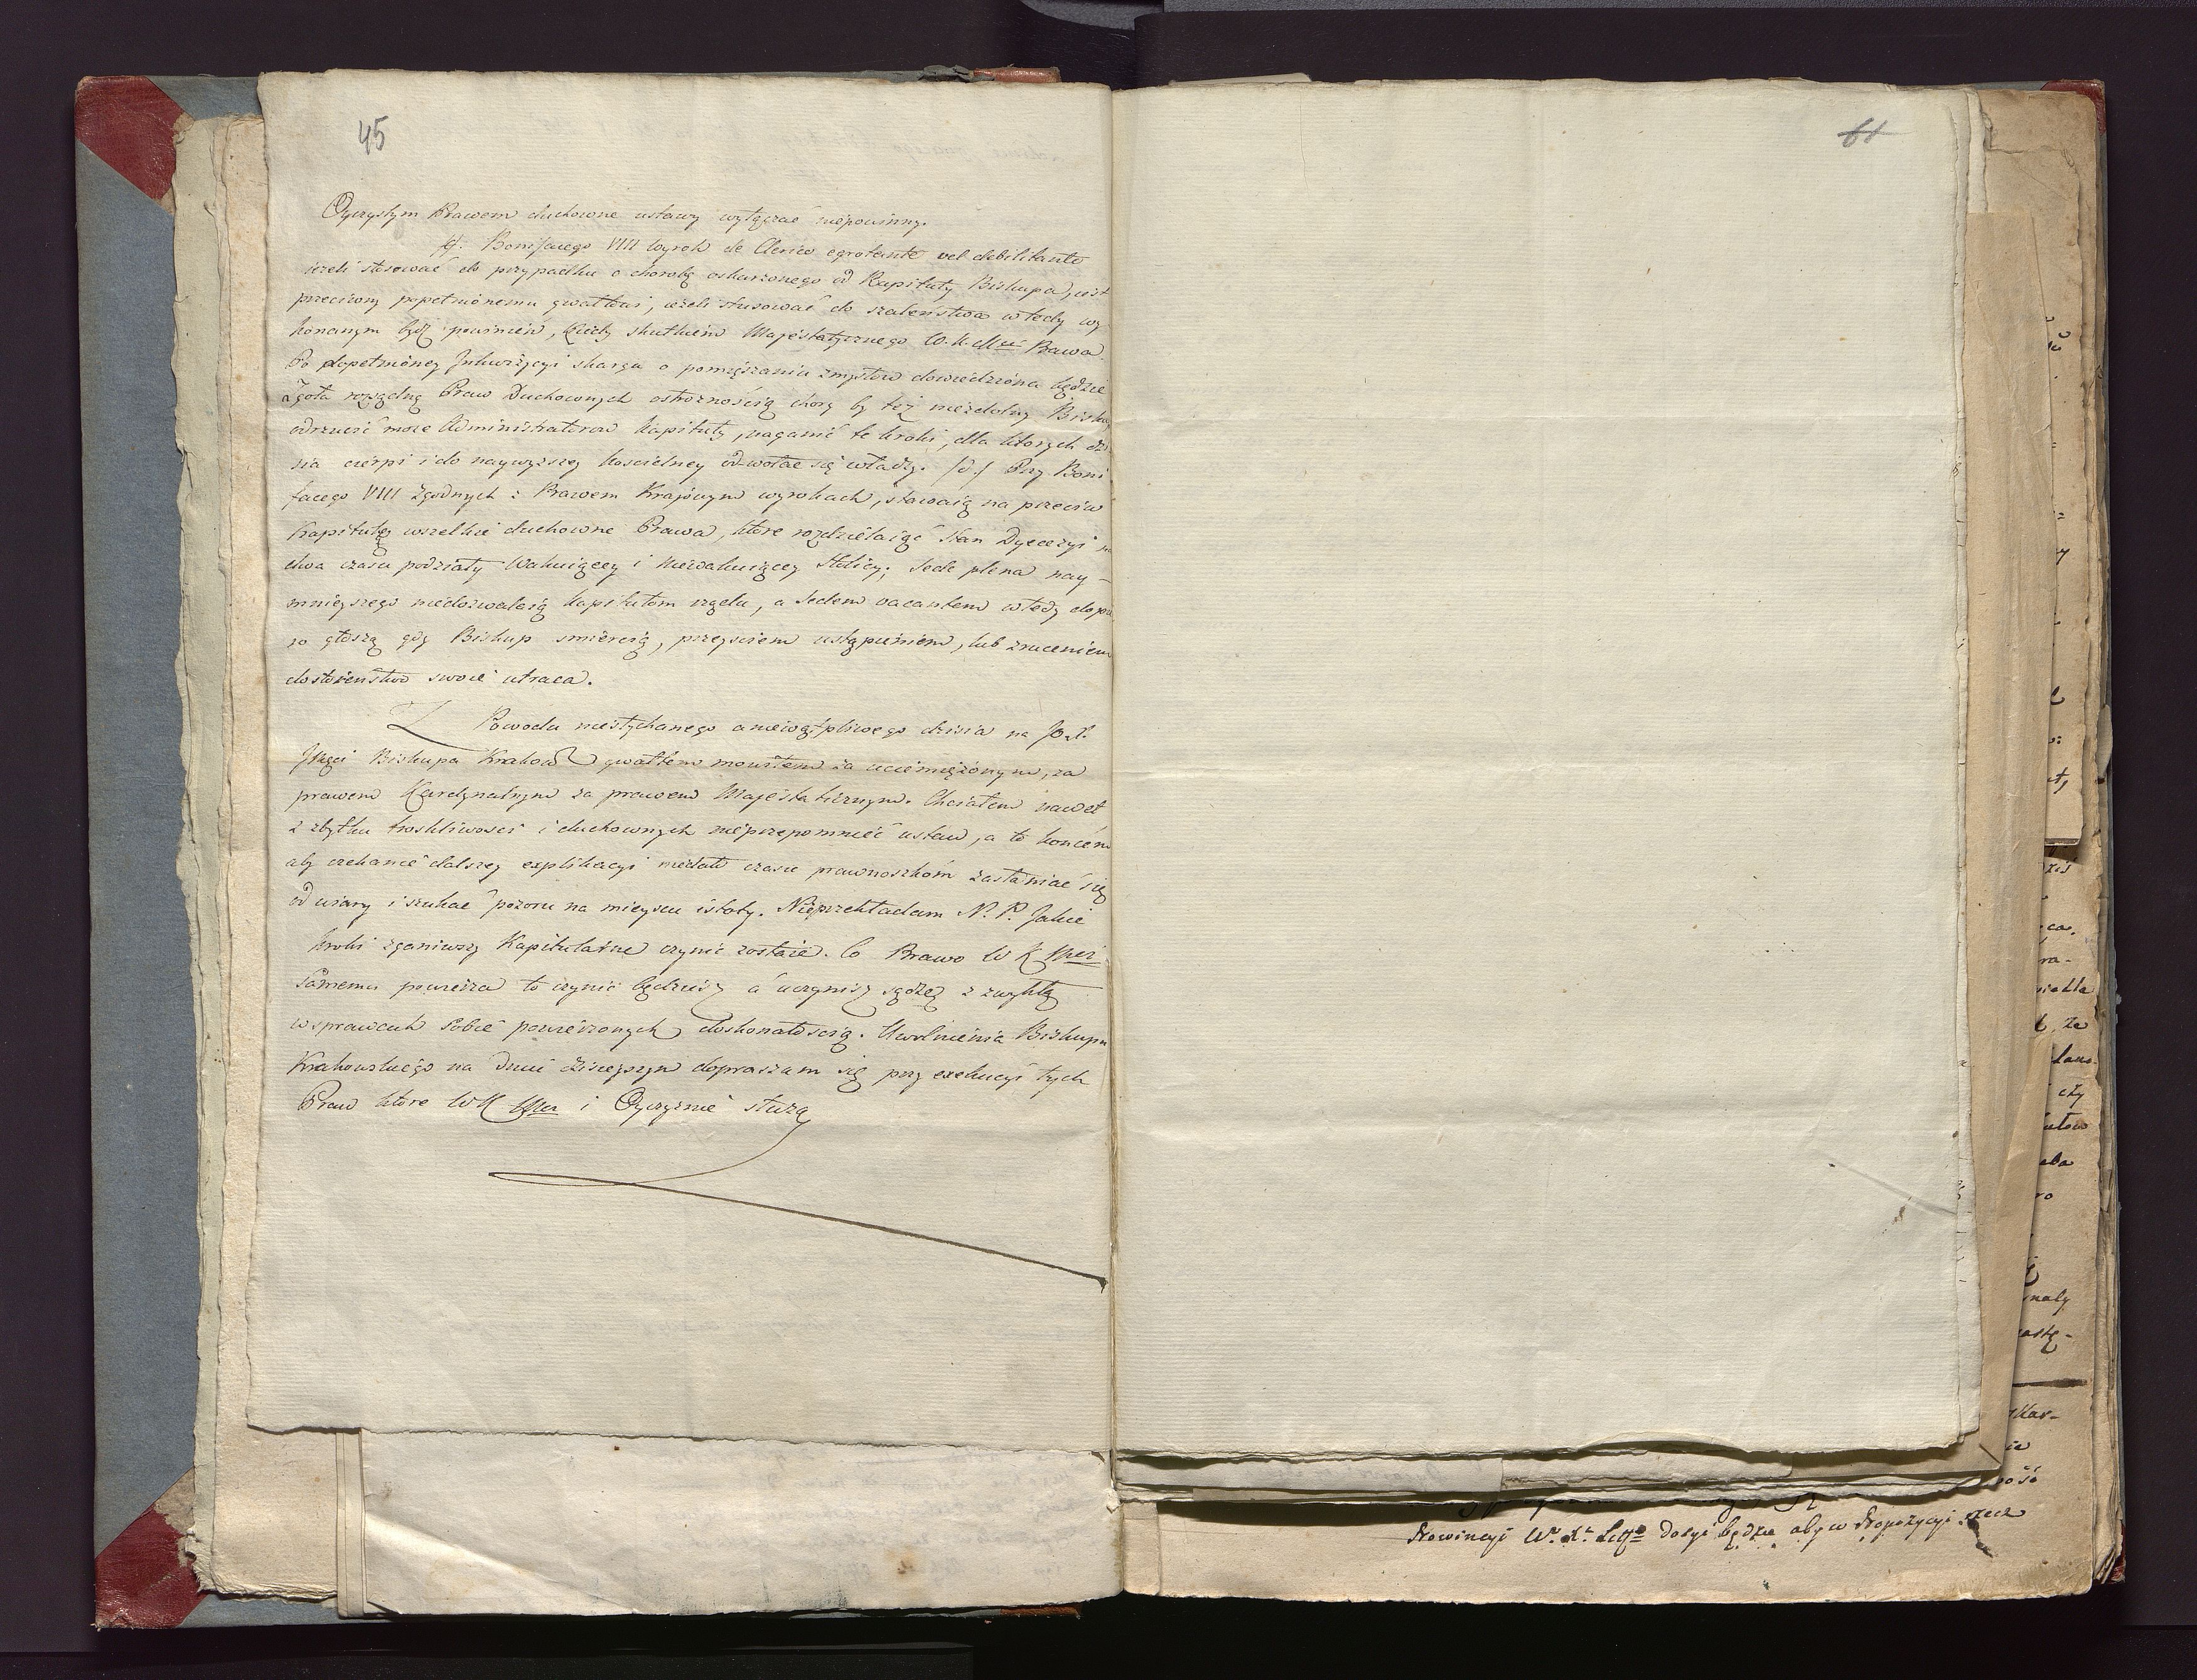 45
Oyczystym Prawem duchowne ustawy wyłączać niepowinny.
Bonifacego VIII wyrok de Clerico egrotante vel debilitante
ieżeli stosować do przypadku o chorobę oskarżonego od Kapituły Biskupa, iest
przeciwny popełnionemu gwałtowi, ieżeli stosować do szaleństwa wtedy wy
konanym bydź powinien, kiedy skutkiem Majestatycznego W. K. Mci Prawa
Po dopełnioney Inkwizycyi skarga o pomięszaniu zmysłow dowiedziona będzie
Zgoła rozsądną Praw Duchownych ostrożnością chory by też niezdolny Bisku
odrzucić może Administratorow Kapituły, naganić te kroki, dla ktorych dzi
sia cierpi i do naywyższey koscielney odwołać się władzy. Przy Boni
facego VIII zgodnych z Prawem Kraiowym wyrokach, stawaią na przeciw
Kapitułę wszelkie duchowne Prawa, ktore rozdzielaiąc Stan Dyecezyi na
dwa czasu podziały Wakuiącey i Niewakuiącey Stolicy; Sede plena nay-
mnieyszego niedozwalaią Kapitułom rządu, a Sedem vacantem wtedy dopie
ro głoszą gdy Biskup smiercią, przeyściem ustąpieniem, lub zruceniem
dostoieństwo swoie utraca.
Z Powodu niesłychanego a niewątpliwego dzisia na
Xcia Biskupa Krakow gwałtem mowiłem za uciemiężonym, za
prawem Kardynalnym za prawem Majestatycznym. Chciałem nawet
z zbytku troskliwosci i duchownych nieprzepomnieć ustaw, a to końcem
aby czekanie dalszey explikacyi niedało czasu prawnoszkom zasłaniać się
od wiary i szukać pozoru na mieyscu istoty. Nieprzekładam N. P. Jakie
kroki zganiwszy Kapitularne czynić zostaie. Co Prawo W K Mci
Samemu powierza to czynić będziesz a uczynisz sądzę z zwykłą
w sprawach Sobie powierzonych doskonałoscią. Uwolnienia Biskupa
Krakowskiego na Dniu dzisieyszym dopraszam się przy exekucyi tych
Praw ktore W K Mci i Oyczyznie służą
61
Prowincyi dosyć będzie aby w Propozycyi rzecz